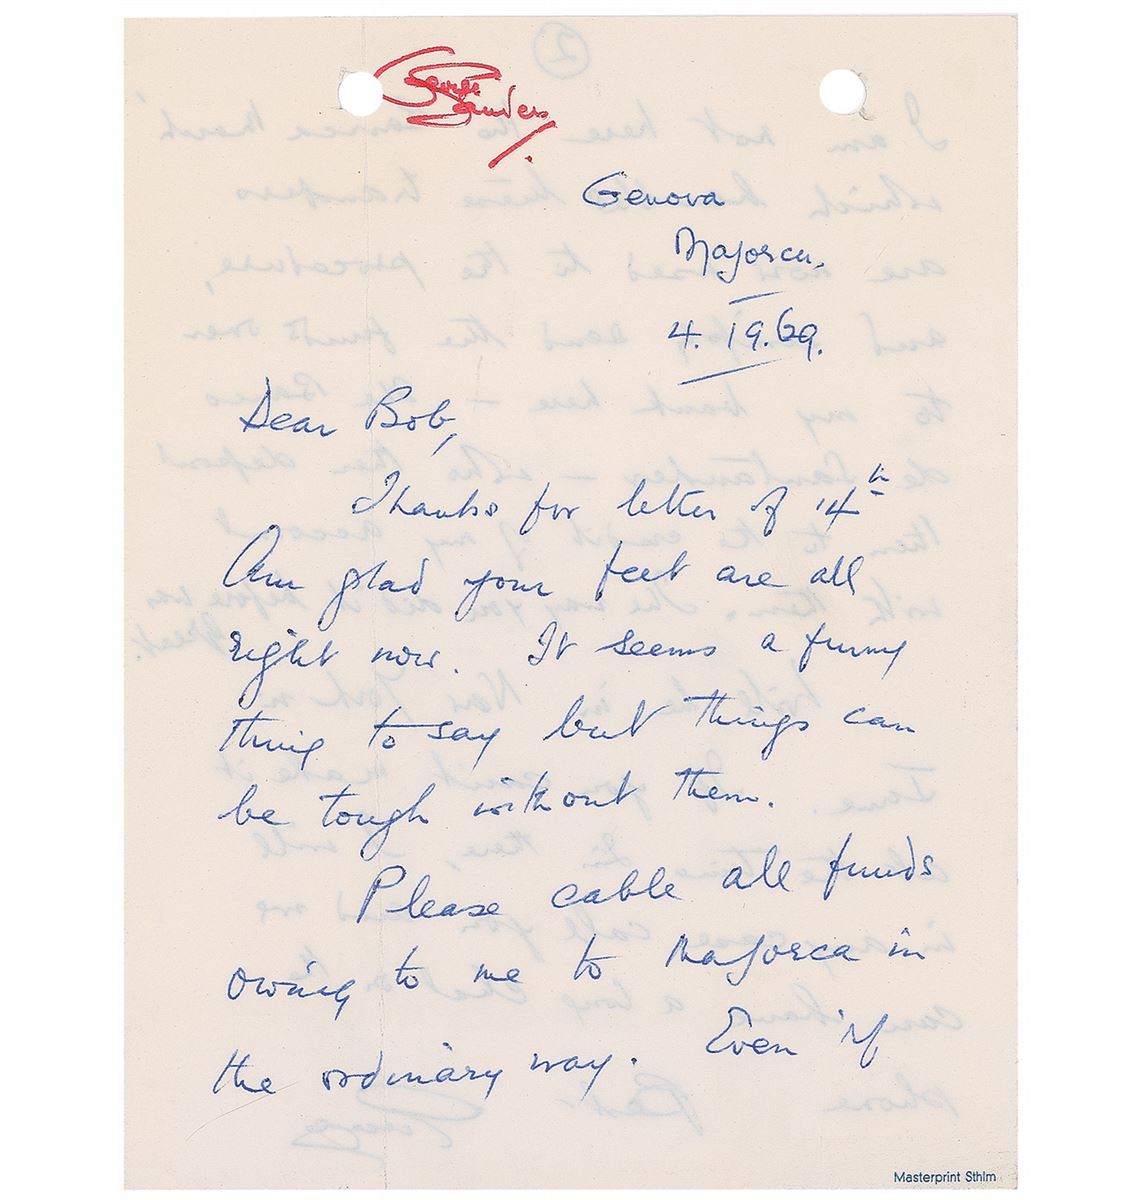 George
Sanders
Genova
Majorca.
4. 19.69.
Dear Bob,
Thanks for letter of 14th
Am glad your feet are all
right now. It seems a funny
thing to say but things can
be tough without them.
Please cable all funds
owing to me to Majorca in
the ordinary way. Even if
Masterprint Sthlm